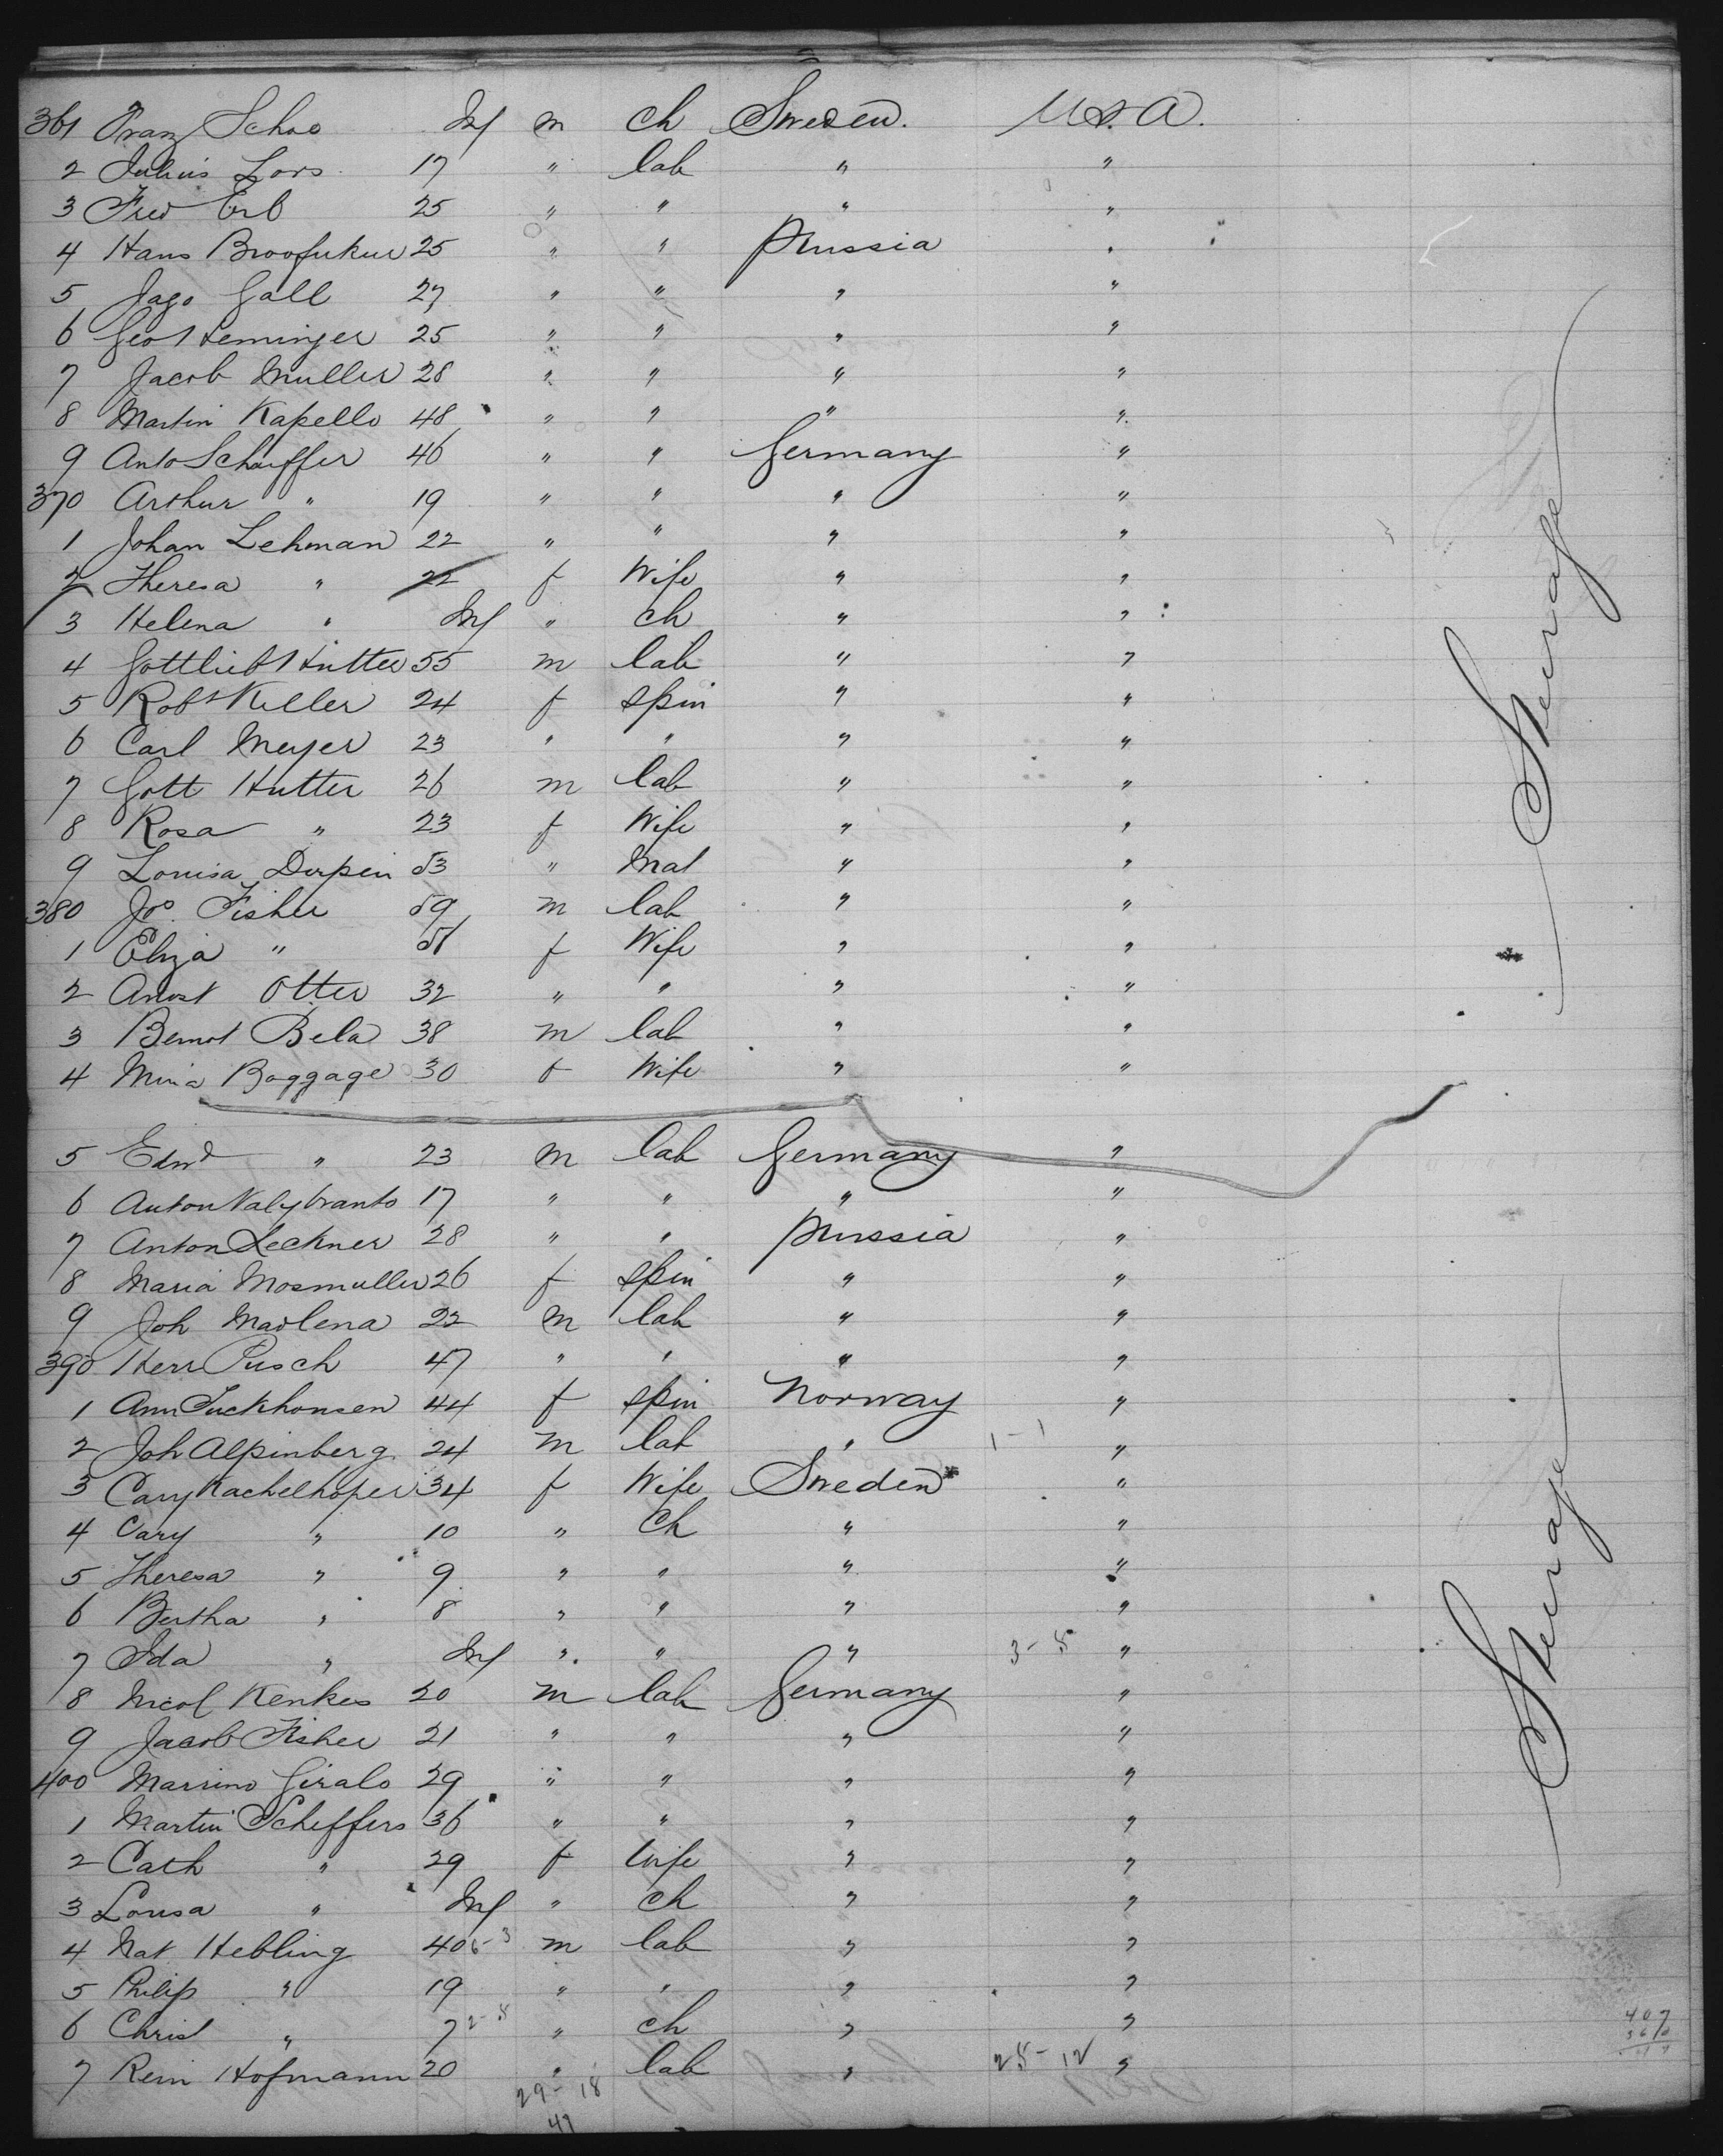 361 Franz Schoo Inf m ch Sweden. U.S.A.
2 Julius Lors 17 " lab " "
3 Fred Erb 25 " " " "
4 Hans 25 " " Prussia "
5 Jago Gall 27 " " " "
6 Geo Heminger 25 " " " "
7 Jacob Muller 28 " " " "
8 Martin Kapello 48 " " " "
9 Anto Schaiffer 46 " " Germany "
370 Arthur " 19 " " " "
1 Johan Lehman 22 " " " "
2 Theresa " 22 f Wife " "
3 Helena " Inf " ch " "
4 Gottlieb Hutter 55 m lab " "
5 Robt Keller 24 f spin " "
6 Carl Meyer 23 " " " "
7 Gott Hutter 26 m lab " "
8 Rosa " 23 f Wife " "
9 Louisa Durpein 53 " Mat " "
380 Jos. Fisher 59 m lab " "
1 Eliza " f Wife " "
2 Otter 32 " " " "
3 Bernot Bela 38 m lab " "
4 Mina Baggage 30 f Wife " "
Steerage
5 Edwd " 23 m lab Germany "
6 Anton 17 " " " "
7 Anton Leckner 28 " " Prussia "
8 Maria Mosmuller 26 f spin " "
9 Joh Madlena 22 m lab " "
390 Herr Pusch 47 " " " "
1 Ann Tuckhonsen 44 f spin Norway "
2 Joh Alpinberg 24 m lab " 1-1 "
3 Cary Kachelhoper 34 f Wife Sweden "
4 Cary " 10 " Ch " "
5 Theresa " 9 " " " "
6 Bertha " 8 " " " "
7 Ida " Inf " " " 3-5 "
8 Nicol Kenkes 20 m lab Germany "
9 Jacob Fisher 21 " " " "
400 Marrino Giralo 29 " " " "
1 Martin Scheffers 36 " " " "
2 Cath " 29 f Wife " "
3 Lousa " Inf " ch " "
4 Nat Hebling 40 6-3 m lab " "
5 Philip " 19 " " " "
6 Christ " 7 2-5 " ch " "
7 Rein Hofmann 20 " lab " 25-12 "
Steerage
29-18
47
407